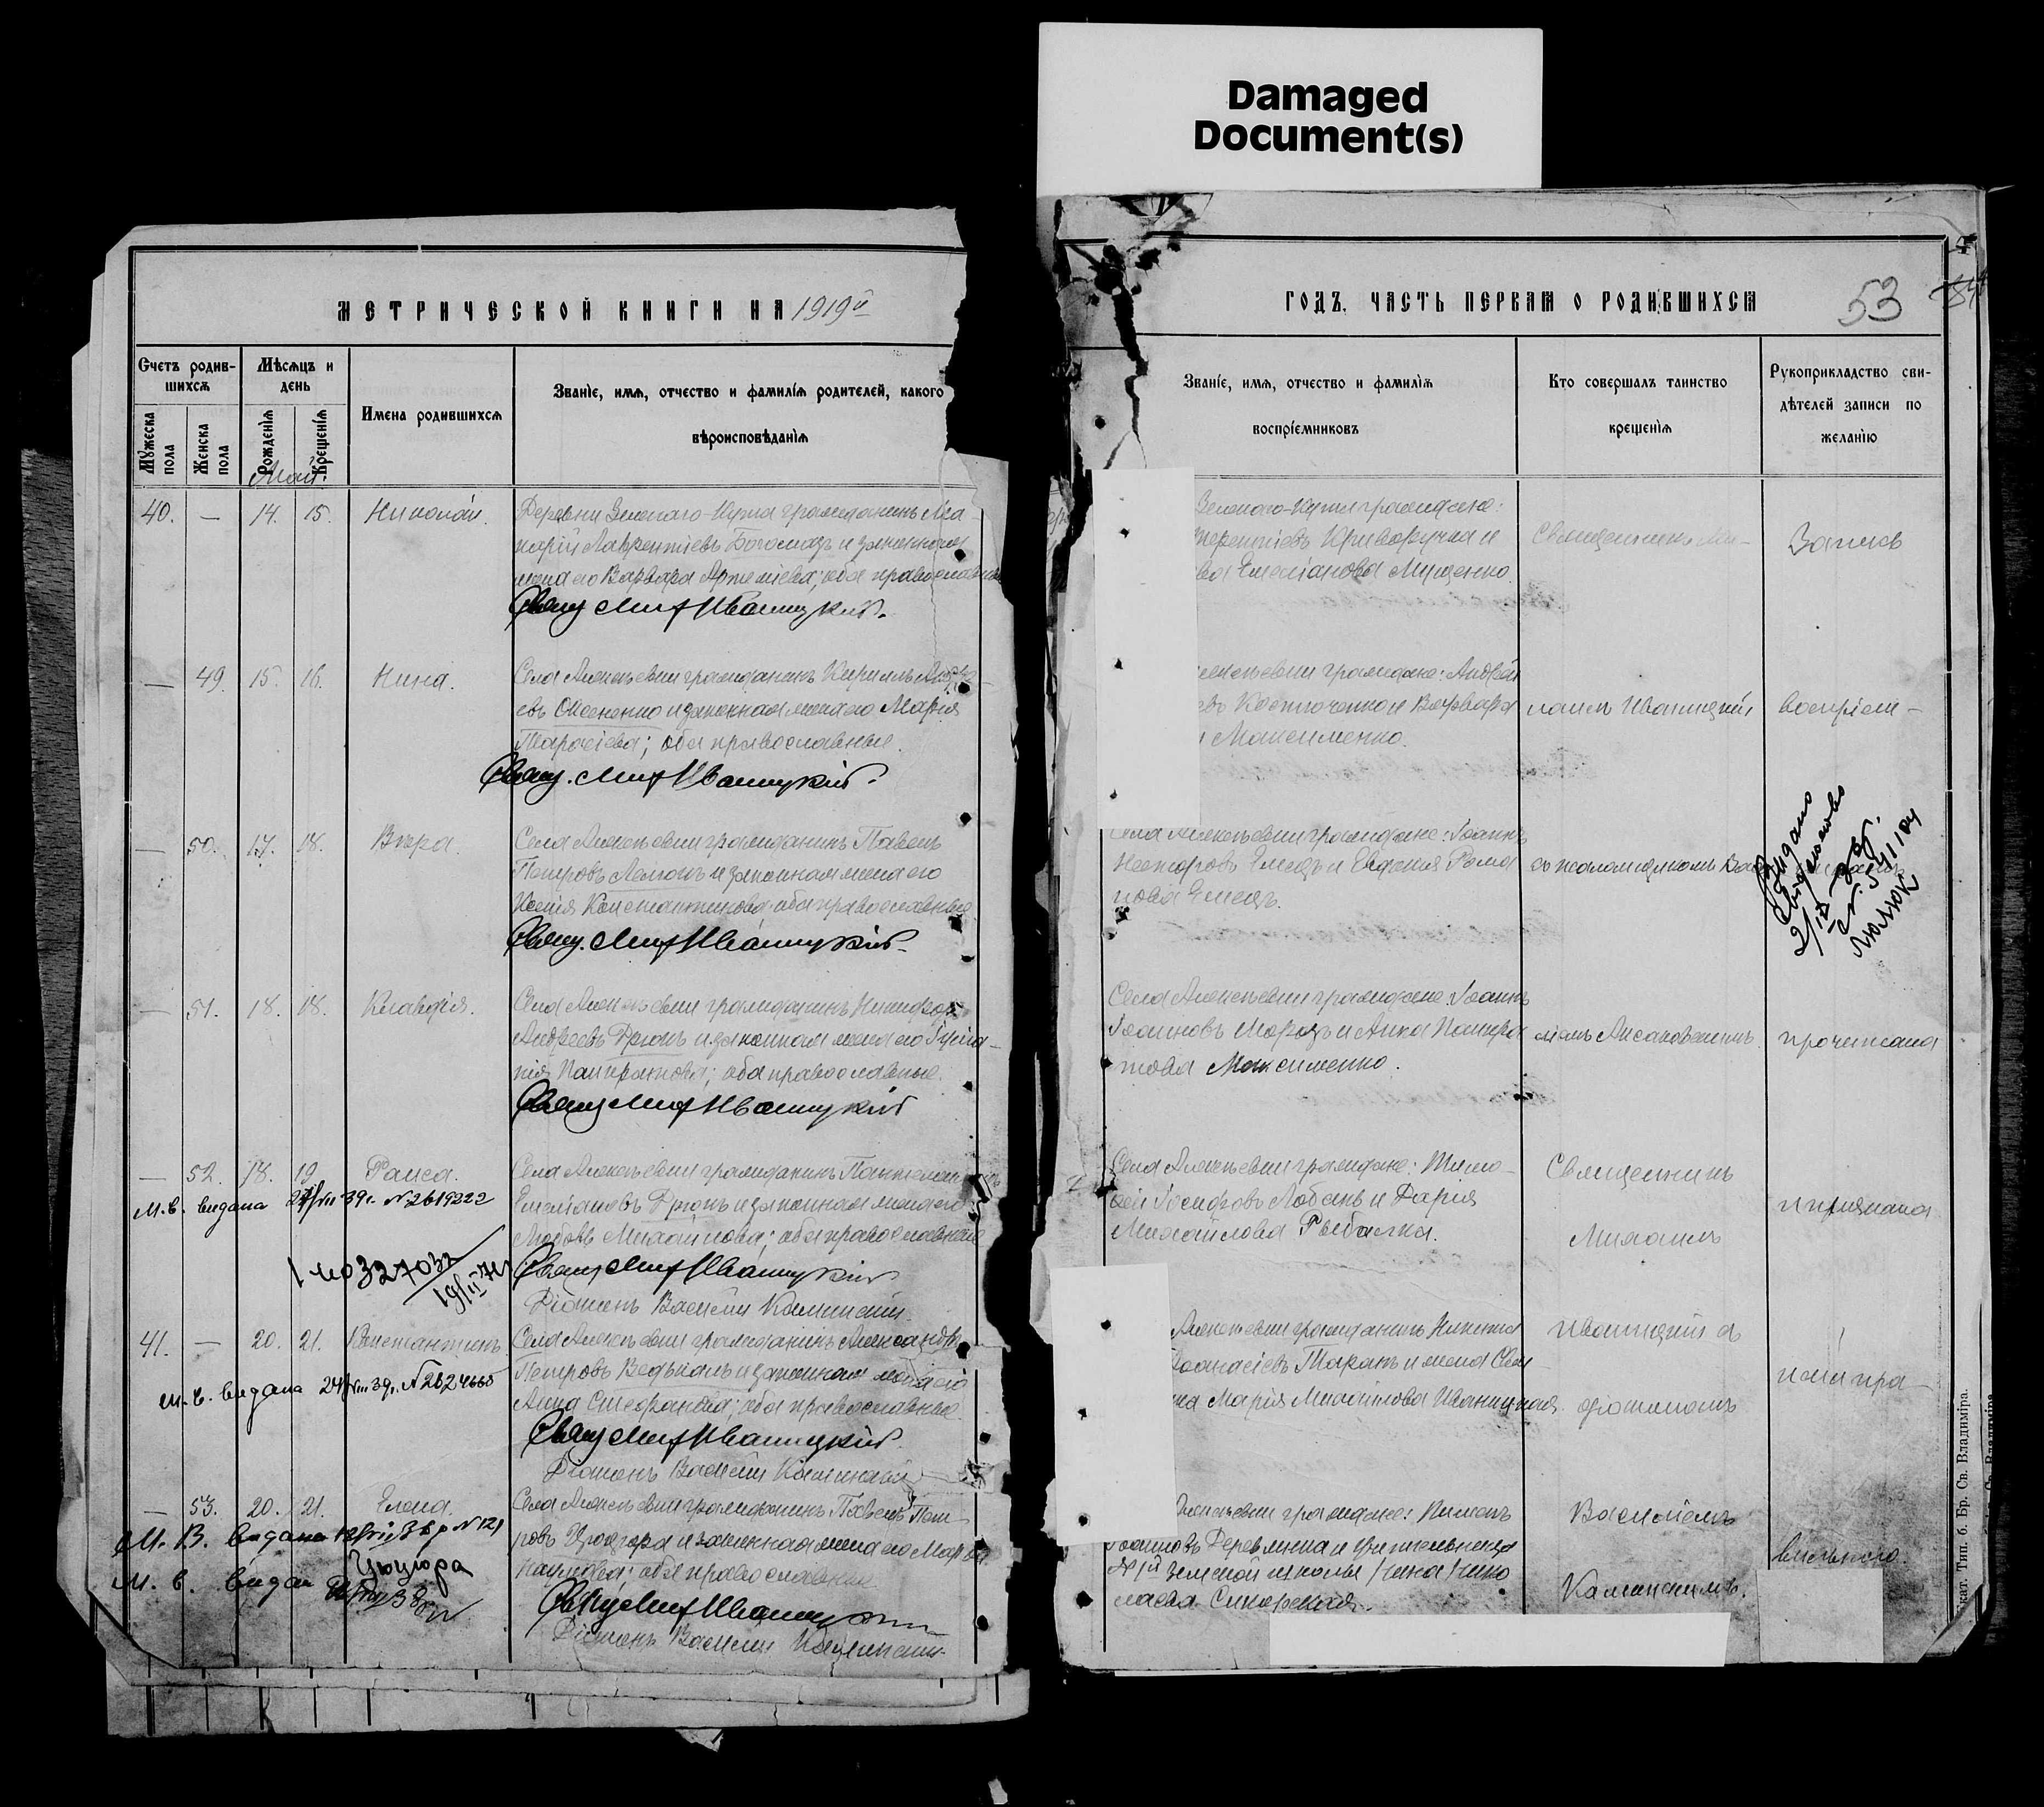 Damaged
Document(s)
МЕТРИЧЕСКОЙ КНИГИ НА 1919й
ГОДЪ, ЧАСТЬ ПЕРВАЯ О РОДИВШИХСЯ
53
Счетъ родив-
шихся
Мужеска
пола
Женска
пола
Мѣсяцъ и
день
Рожденія
Крещенія
Май.
Имена родившихся
Званіе, имя, отчество и фамилія родителей, какого
вѣроисповѣданія
Званіе, имя, отчество и фамилія
воспріемниковъ
Кто совершалъ таинство
крещенія
Рукоприкладство сви-
дѣтелей записи по
желанію
40. — 14. 15. Николай.
Деревни Зеленаго-Кута гражданинъ Ма-
карій Лаврентіевъ Богомазъ и законная
жена его Варвара Артеміева; оба православные
Свящ. Мих Иваницкій.
Зеленаго-Кута граждане:
Терентіевъ Криворучка и
Емеліанова Мищенко.
Священникъ Ми-
Запись
— 49. 15. 16. Нина.
Села Алексѣевки гражданинъ Кириллъ Андре
евъ Оксененко и законная жена его Марія
Тарасіева; оба православные.
Свящ. Мих Иваницкій.
граждане: Андрей
евъ Костюченко и Варвара
Максименко.
хаилъ Иваницкій
воспріем-
— 50. 17. 18. Вѣра.
Села Алексѣевки гражданинъ Павелъ
Петровъ Лемохъ и законная жена его
Ксенія Константинова; оба православные.
Свящ. Мих Иваницкій.
Села Алексѣевки граждане: Іоаннъ
Несторовъ Емецъ и Евдокія Рома
нова Емецъ.
съ псаломщикомъ
Видано
свідоцтво
— 51. 18. 18. Клавдія.
Села Алексѣевки гражданинъ Никифоръ
Андреевъ Дрюкъ и законная жена его
Панкратова; оба православные.
Свящ Мих Иваницкій
Села Алексѣевки граждане: Іоаннъ
Іоанновъ Морозъ и Анна Панкра
това Максименко.
прочитана
— 52. 18. 19. Раиса.
М.в. видана 27/VIII 39г. № 2619222
Села Алексѣевки гражданинъ Пантелеи
Емеліановъ Дрюкъ и законная жена его
Любовь Михайлова; оба православные
Свящ Мих Иваницкій
Діаконъ Василій Каминскій.
Села Алексѣевки граждане: Тимо-
фей Іосифовъ Лобань и Дарія
Михайлова Рыбалка.
Священникъ
Михаилъ
и признана
41. — 20. 21. Константинъ
М.в. видана 24/VIII 39г. № 2624660
Села Алексѣевки гражданинъ Александръ
Петровъ Ведькалъ и законная жена его
Анна Стефанова; оба православные.
Свящ Мих Иваницкій.
Діаконъ Василій Каминскій
Алексѣевки гражданинъ Никита
Аѳанасіевъ Таранъ и жена Свя
ка Марія Михайлова Иваницкая.
Иваницкій съ
діакономъ
нами пра-
— 53. 20. 21. Елена.
М. В. видана
Цюцюра
М. в. видан
Села Алексѣевки гражданинъ Павелъ Пет
ровъ Цюцюра и законная жена его
оба православные
Свящ Мих Иваницкій
Діаконъ Василій Каминскій.
Алексѣевки граждане: Пименъ
Іоанновъ Деревянка и учительница
земской школы Нина Нико
лаева Сикорская.
Василіемъ
Каминскимъ.
вильною.
Екат. Тип. б. Бр. Св. Владиміра.